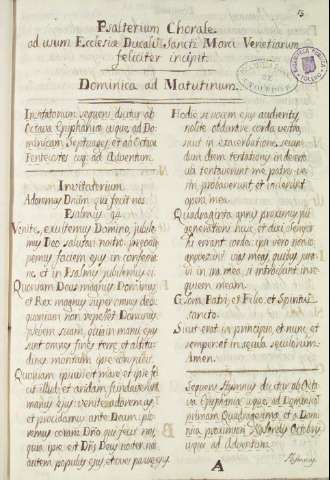 13
Psalterium Chorale
ad usum Ecclesiæ Ducalis Sancti Marci Venetiarum
feliciter incipit.
Dominica ad Matutinum.
Invitatorium sequens dicitur ab
Octava Epiphaniæ usque ad Do-
minicam Septuages. et ab Octava
Pentecostes usque ad Adventum.
Invitatorium
Adoremus Dnum qui fecit nos.
Psalmus 94
Venite, exultemus Domino, jubile-
mus Deo salutari nostro: præoccu-
pemus faciem ejus in confessio-
ne, et in Psalmis jubilemus ei.
Quoniam Deus magnus Dominus,
et Rex magnus super omnes deos:
quoniam non repellet Dominus
plebem suam, quia in manu ejus
sunt omnes fines terræ, et altitu-
dines montium ipse conspicit.
Quoniam ipsius est mare, et ipse fe-
cit illud, et aridam fundaverunt
manus ejus: venite adoremus,
et procidamus ante Deum: plo-
remus coram Dno qui fecit nos,
quia ipse est Dns Deus noster: nos
autem populus ejus, et oves pascuæ ejus.
Hodie si vocem ejus audieritis,
nolite obdurare corda vestra,
sicut in exacerbatione, secun-
dum diem tentationis in deserto:
ubi tentaverunt me patres ves-
tri, probaverunt et viderunt
opera mea.
Quadraginta annis proximus fui
generationi huic, et dixi: semper
hi errant corde: ipsi vero non co-
gnoverunt vias meas, quibus jura-
vi in ira mea, si introibunt in re-
quiem meam.
Gloria Patri, et Filio, et Spiritui
Sancto.
Sicut erat in principio, et nunc, et
semper, et in sæcula sæculorum.
Amen.
Sequens Hymnus dicitur ab Octa-
va Epiphaniæ usque ad Dominicam
primam Quadragesimæ, et a Domi-
nica proximiori Kalendis Octobris
usque ad Adventum.
A
Hymnus